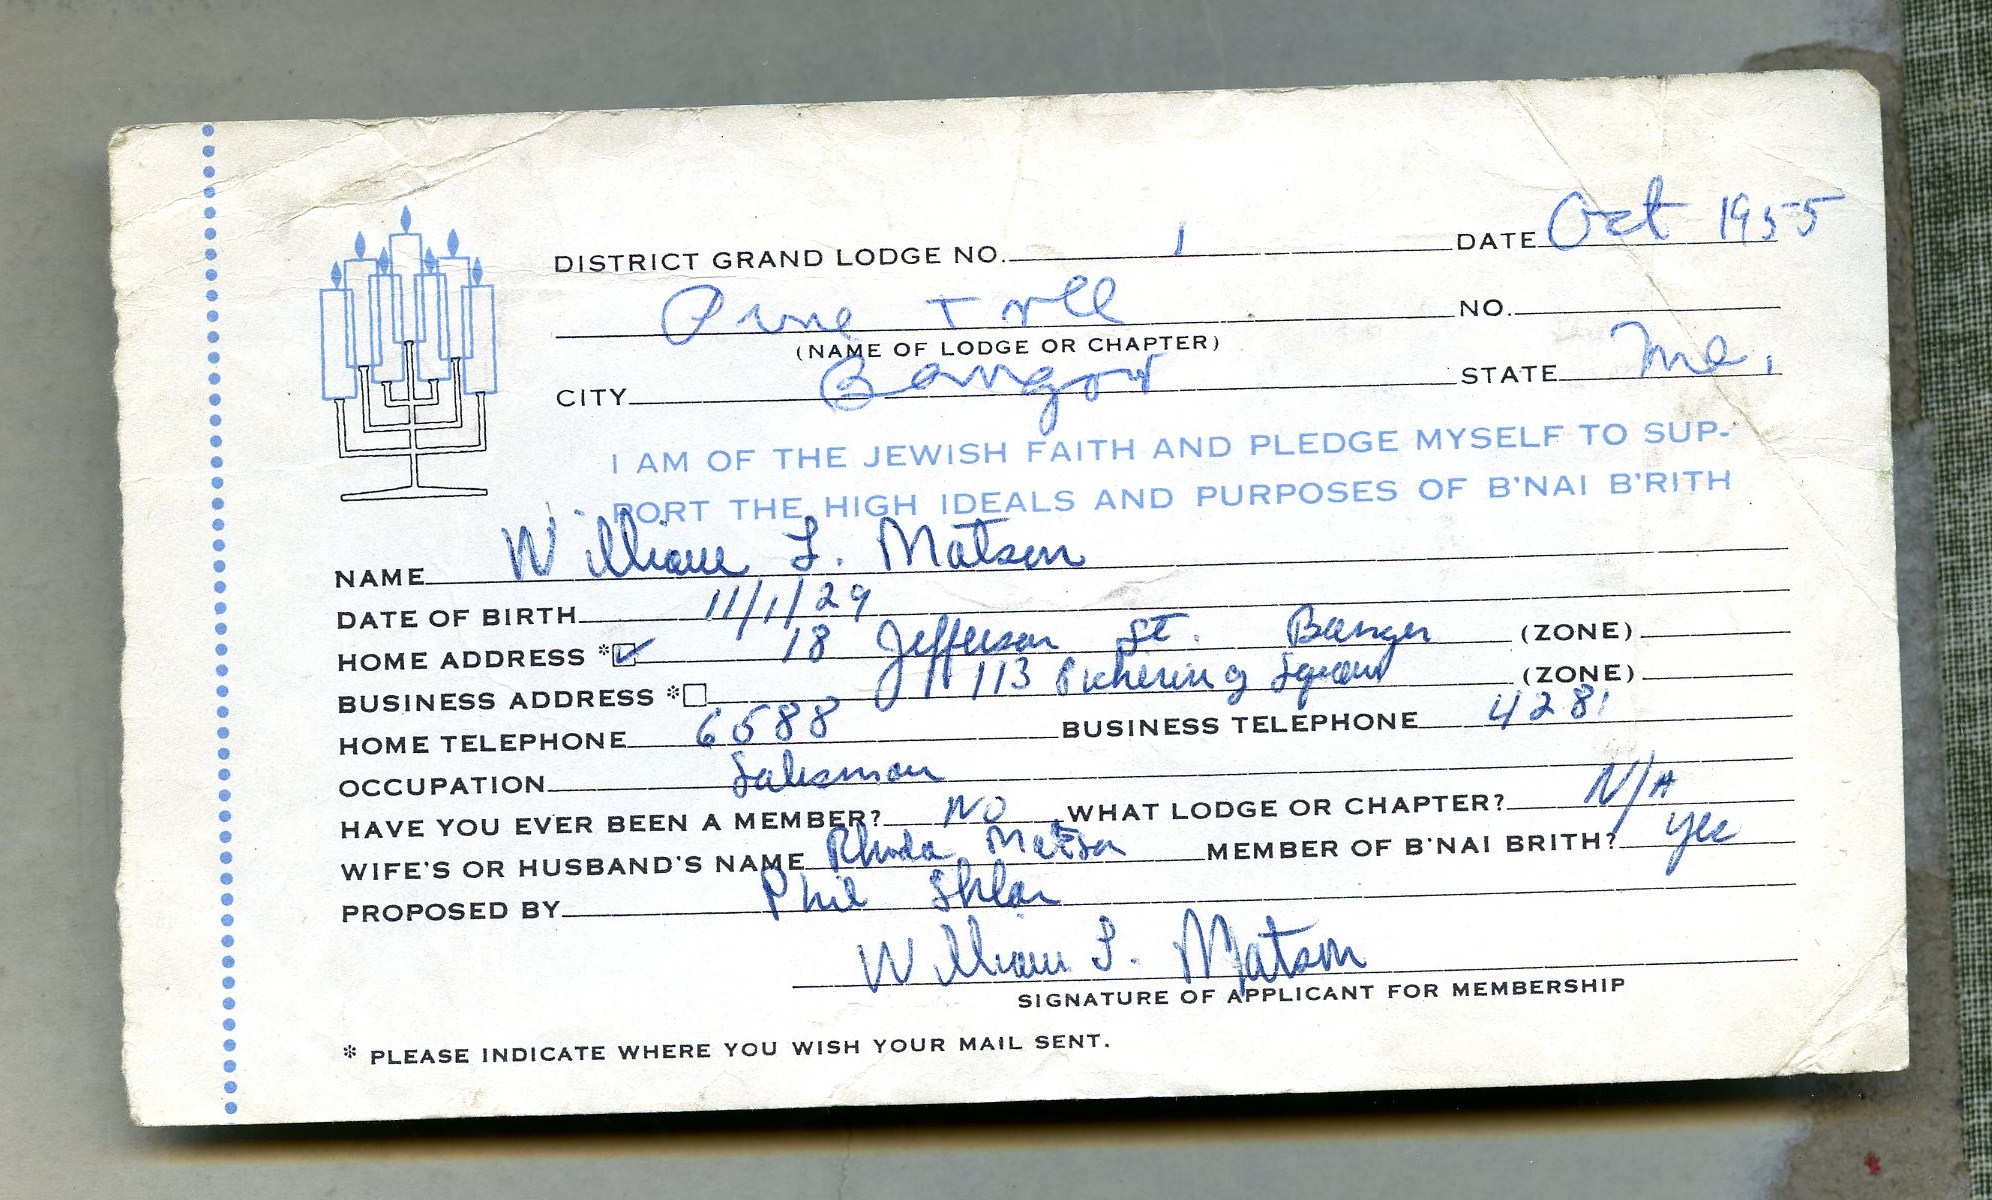 DISTRICT GRAND LODGE NO. 1 DATE Oct 1955
Pine Tree NO.
(NAME OF LODGE OR CHAPTER)
CITY Bangor STATE Me.
I AM OF THE JEWISH FAITH AND PLEDGE MYSELF TO SUP-
PORT THE HIGH IDEALS AND PURPOSES OF B'NAI B'RITH
NAME William I. Matson
DATE OF BIRTH 11/1/29
HOME ADDRESS *☑ 18 Jefferson St. Bangor (ZONE)
BUSINESS ADDRESS *☐ 113 Pickering Square (ZONE)
HOME TELEPHONE 6588 BUSINESS TELEPHONE 4281
OCCUPATION Salesman
HAVE YOU EVER BEEN A MEMBER? NO WHAT LODGE OR CHAPTER? N/A
WIFE'S OR HUSBAND'S NAME Rhoda Matson MEMBER OF B'NAI BRITH? yes
PROPOSED BY Phil Shlar
William I. Matson
SIGNATURE OF APPLICANT FOR MEMBERSHIP
* PLEASE INDICATE WHERE YOU WISH YOUR MAIL SENT.